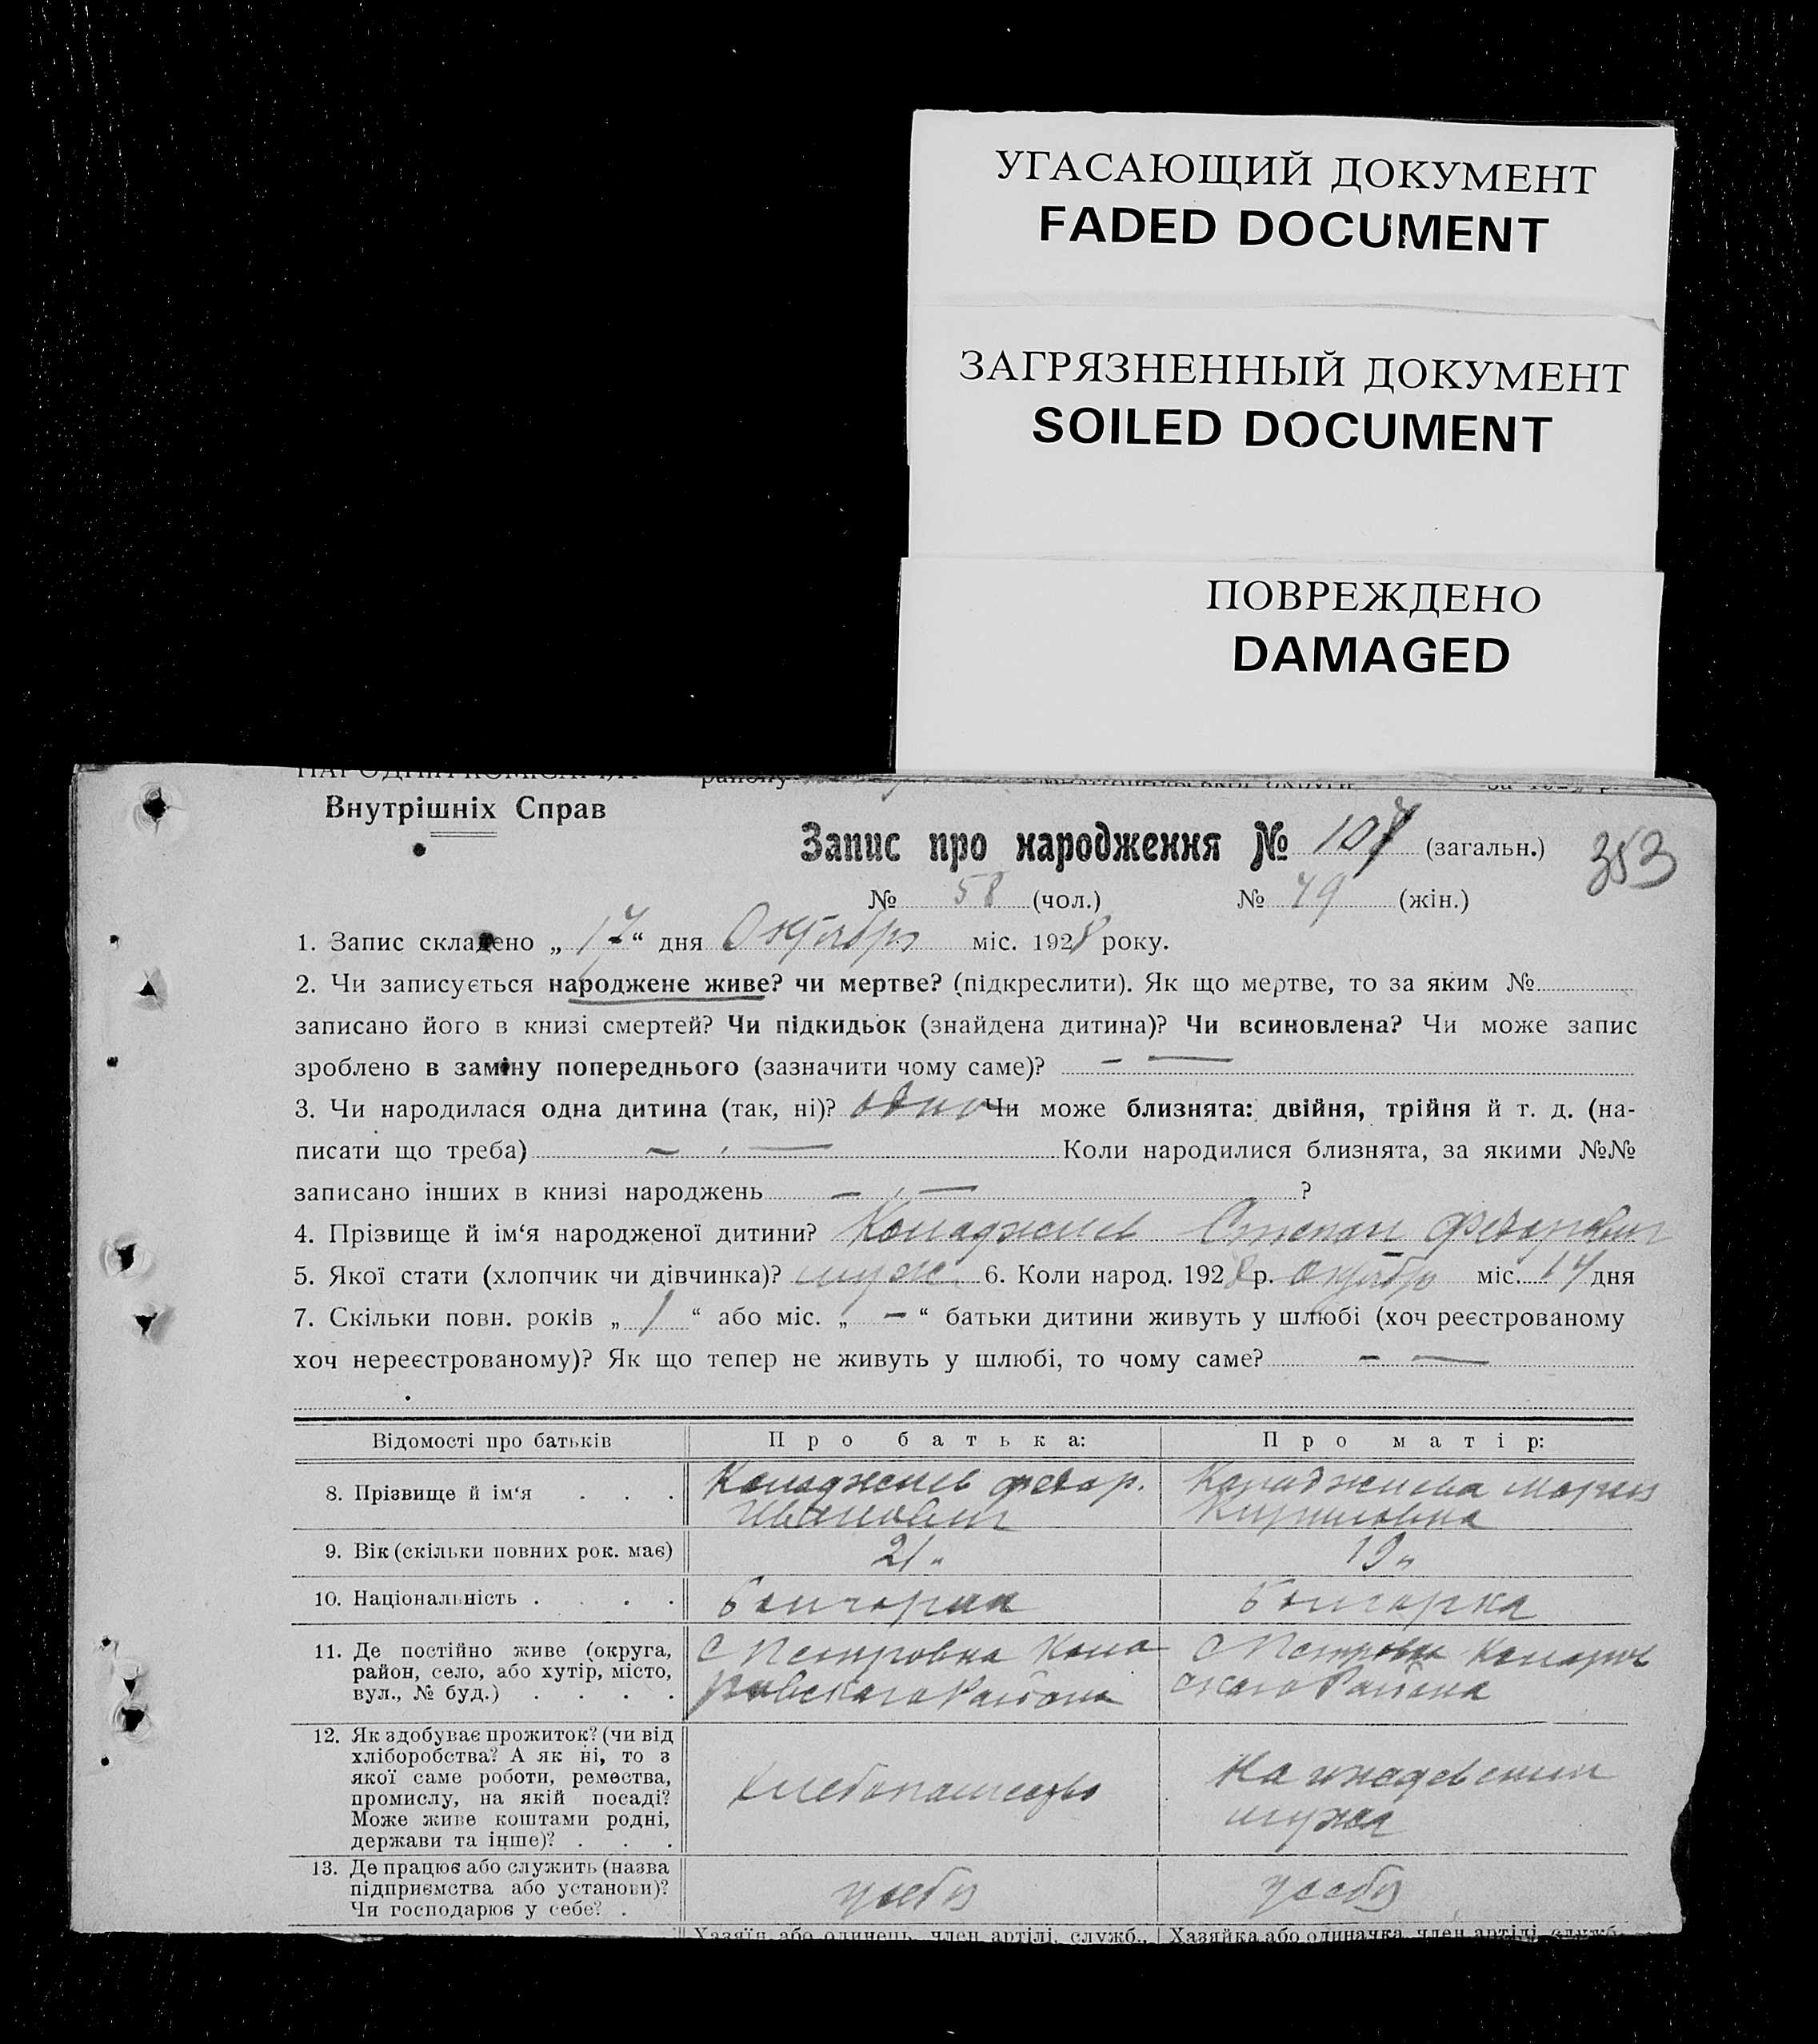 УГАСАЮЩИЙ ДОКУМЕНТ
FADED DOCUMENT
ЗАГРЯЗНЕННЫЙ ДОКУМЕНТ
SOILED DOCUMENT
ПОВРЕЖДЕНО
DAMAGED
району
Внутрішніх Справ
Запис про народження № 107 (загальн.)
353
№ 58 (чол.) № 49 (жін.)
1. Запис складено „ 17 “ дня Октября міс. 1928 року.
2. Чи записується народжене живе? чи мертве? (підкреслити). Як що мертве, то за яким №
записано його в книзі смертей? Чи підкидьок (знайдена дитина)? Чи всиновлена? Чи може запис
зроблено в заміну попереднього (зазначити чому саме)? – —
3. Чи народилася одна дитина (так, ні)? одно Чи може близнята: двійня, трійня й т. д. (на-
писати що треба) – — Коли народилися близнята, за якими №№
записано інших в книзі народжень – — ?
4. Прізвище й ім‘я народженої дитини? Степан Федорович
5. Якої стати (хлопчик чи дівчинка)? муж. 6. Коли народ. 1928 р. октябр міс. 14 дня
7. Скільки повн. років „ 1 “ або міс. „ – “ батьки дитини живуть у шлюбі (хоч реєстрованому
хоч нереєстрованому)? Як що тепер не живуть у шлюбі, то чому саме? – —
Відомості про батьків Про батька: Про матір:
8. Прізвище й ім‘я . . . Федор. Иванович Мария Кириловна
9. Вік (скільки повних рок. має) 21 „ 19 „
10. Національність . . . . болгарин болгарка
11. Де постійно живе (округа,
район, село, або хутір, місто,
вул., № буд.) . . . .
С Петровка Кома
ровского Района
С Петровка Комаров
ского Района
12. Як здобуває прожиток? (чи від
хліборобства? А як ні, то з
якої саме роботи, ремества,
промислу, на якій посаді?
Може живе коштами родні,
держави та інше)? . . .
хлебопашество
На иждевении
мужа
13. Де працює або служить (назва
підприємства або установи)?
Чи господарює у себе? .
у себя
у себя
Хазяїн або одинець, член артілі, служб., Хазяйка або одиначка, член артілі, служб.